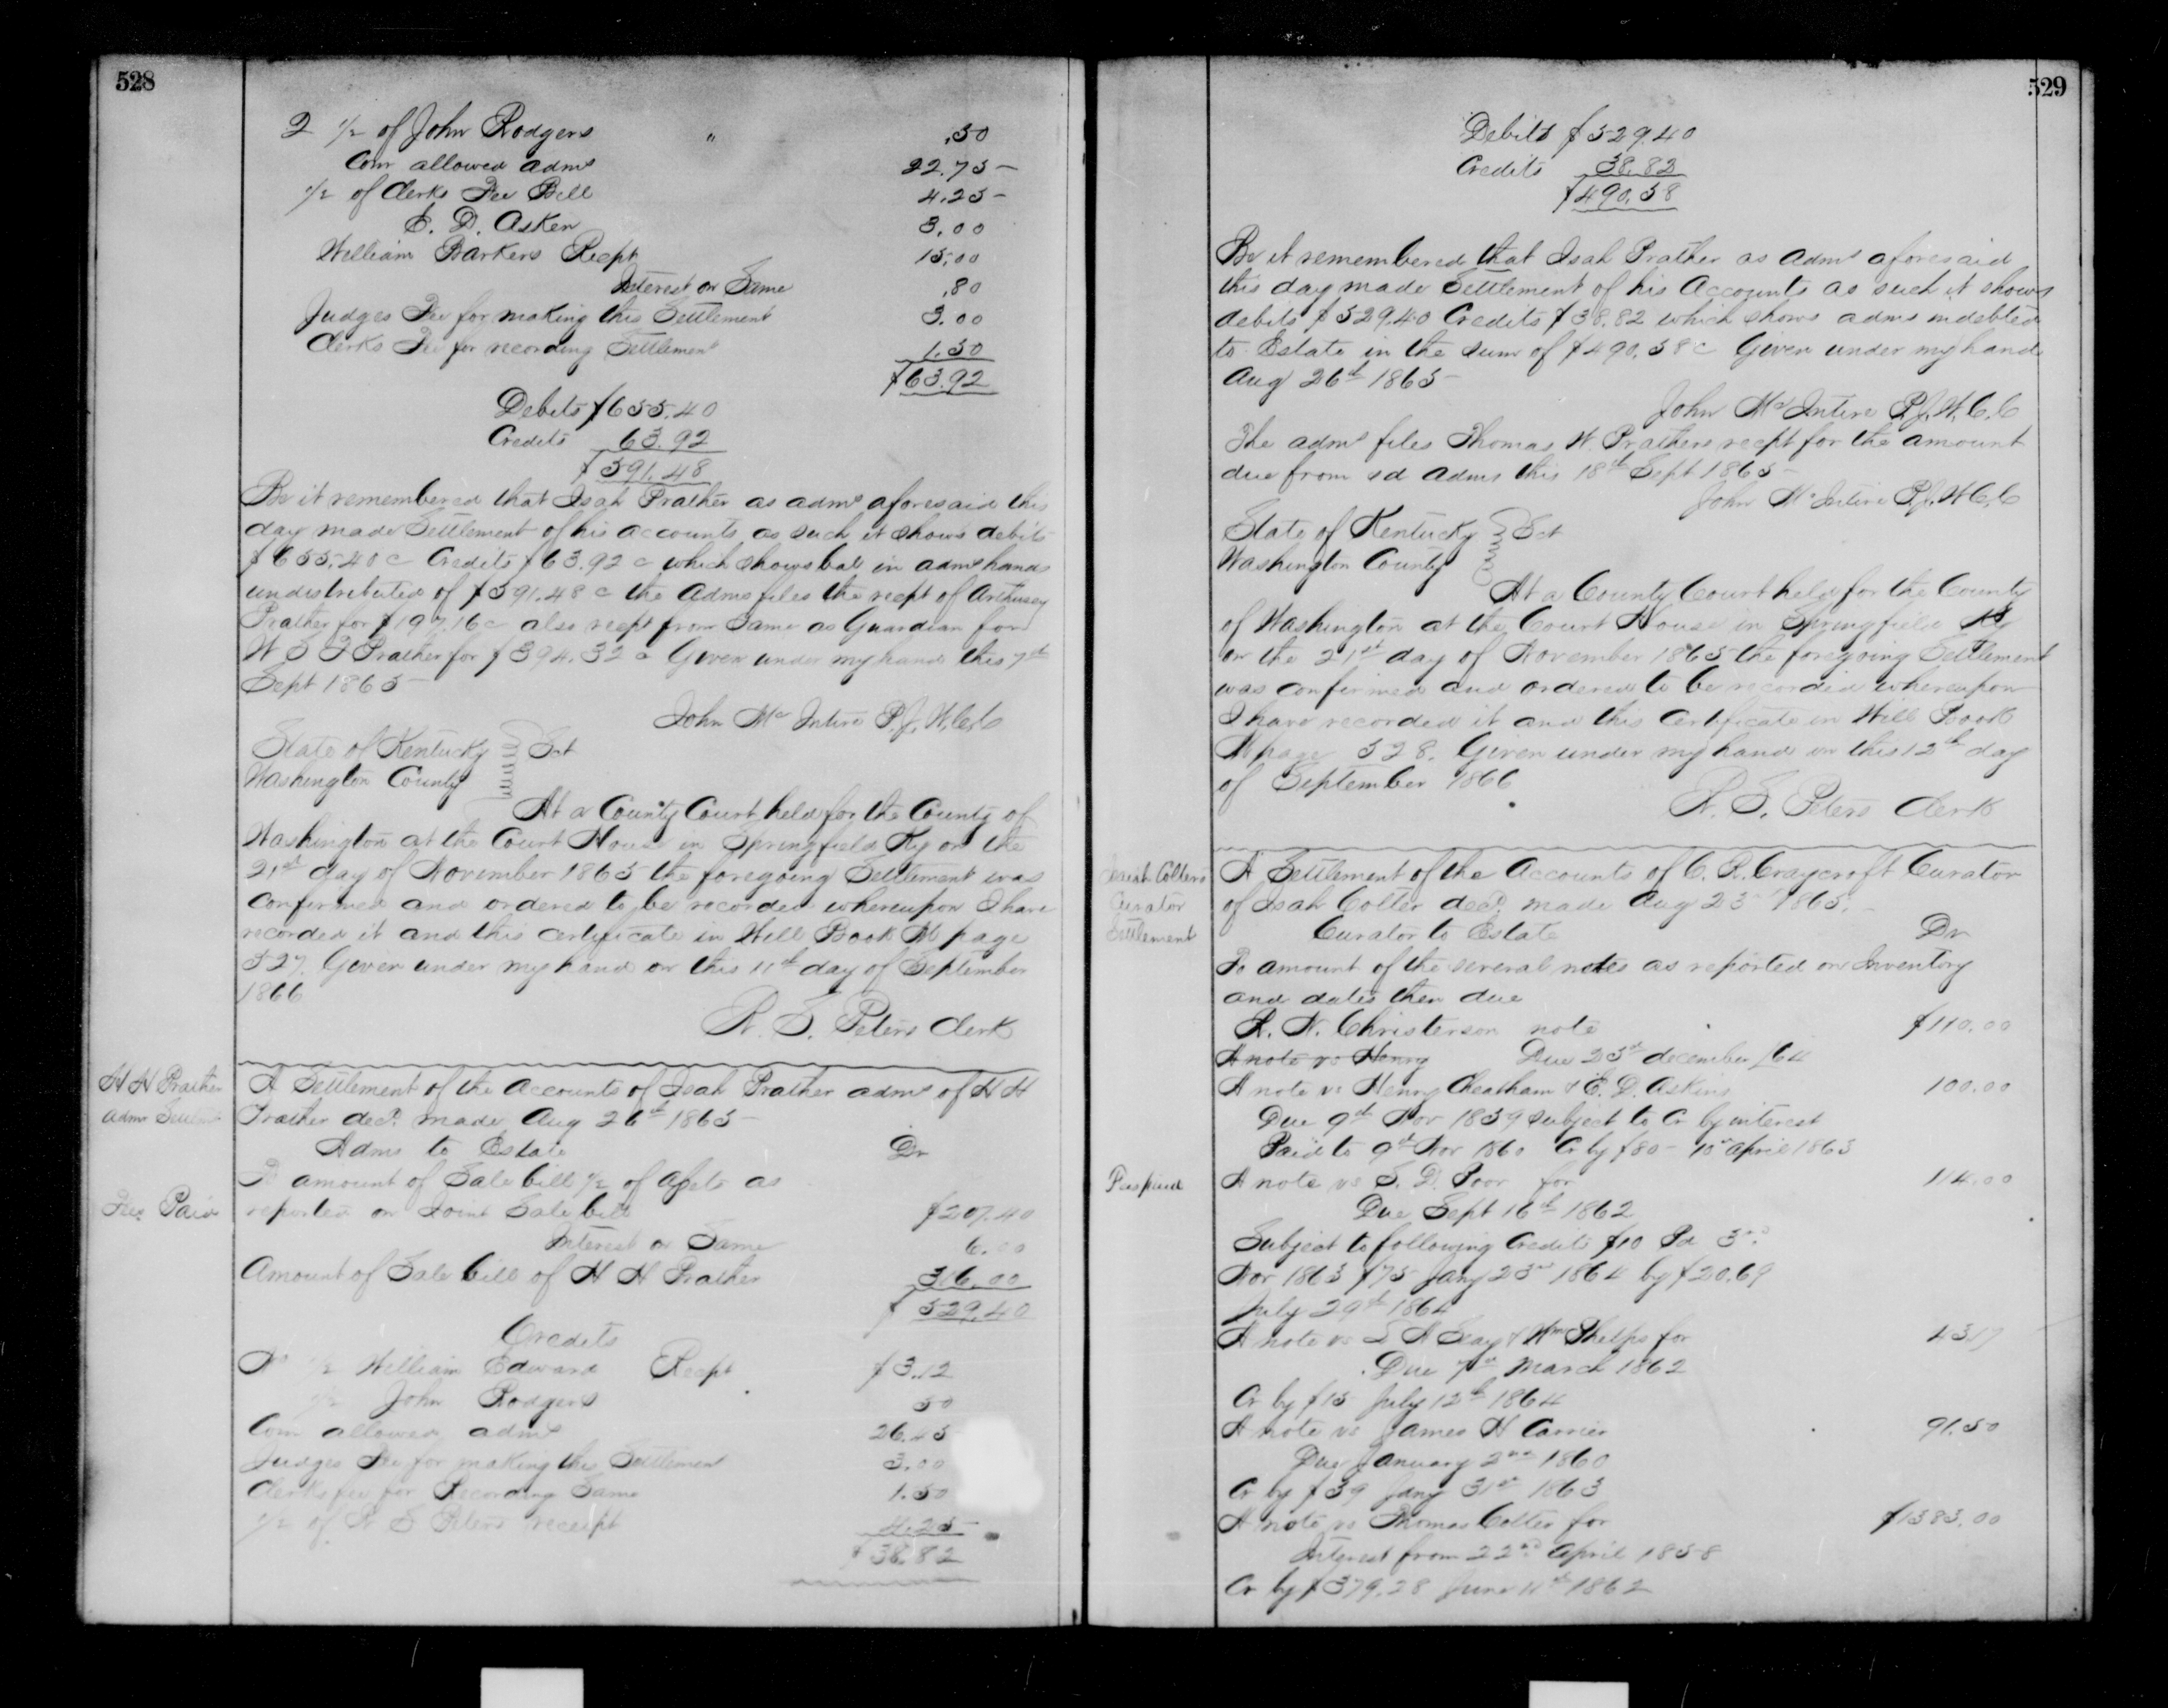 528
2 1/2 of John Rodgers " .50
Com allowed admr 22.75
1/2 of Clerks Fee Bill 4.25
E. D. Asken 3.00
William Barkers Recpt 15.00
Interest on Same .80
Judges Fee for making this Settlement 3.00
Clerks Fee for recording Settlement 1.50
$63.92
Debits $655.40
Credits 63.92
$591.48
Be it remembered that Isah Prather as admr aforesaid this
day made Settlement of his accounts as such it shows debits
$655.40 c Credits $63.92 c which shows bal in admrs hands
undistributed of $591.48 c the Admr files the recpt of
Prather for $197.16 c also recpt from Same as Guardian for
W S F Prather for $394.32 c Given under my hand this 7th
Sept 1865
John McIntire P.J.W.C.C
State of Kentucky Sct
Washington County
At a County Court held for the County of
Washington at the Court House in Springfield Ky on the
21st day of November 1865 the foregoing Settlement was
Confirmed and ordered to be recorded whereupon I have
recorded it and this certificate in Will Book M page
527. Given under my hand on this 11th day of September
1866
W. S. Peters Clerk
H H Prather
admr Settlmt
A Settlement of the Accounts of Isah Prather admr of H H
Prather decd. made Aug 26th 1865
Admr to Estate Dr
To amount of Sale bill 1/2 of assets as
Fee Paid
reported on Joint Sale bill $207.40
Interest on Same 6.00
Amount of Sale bill of H H Prather 316.00
$529.40
Credits
No 1/2 William Edward Recpt $3.12
1/2 John Rodgers 50
Com allowed admr 26.45
Judges Fee for making this Settlement 3.00
Clerks fee for Recording Same 1.50
1/2 of W S Peters receipt 4.25
$38.82
529
Debits $529.40
Credits 38.82
$490.58
Be it remembered that Isah Prather as Admr aforesaid
this day made Settlement of his Accounts as such it shows
debits $529.40 Credits $38.82 which shows admr indebted
to Estate in the sum of $490.58 c Given under my hand
Aug 26th 1865
John McIntire P.J.W.C.C
The admr files Thomas W. Prathers recpt for the amount
due from sd Admr this 18th Sept 1865
John McIntire P.J.W.C.C
State of Kentucky Sct
Washington County
At a County Court held for the County
of Washington at the Court House in Springfield Ky
on the 21st day of November 1865 the foregoing Settlement
was confirmed and ordered to be recorded whereupon
I have recorded it and this Certificate in Will Book
M page 528. Given under my hand on this 12th day
of September 1866
W. S. Peters Clerk
Colters
Curator
Settlement
A Settlement of the Accounts of C. R. Craycroft Curator
of Isah Colter decd. made Aug 25 1865.
Curator to Estate Dr
To amount of the several notes as reported on Inventory
and dates then due
R. N. Christerson note $110.00
A note vs Henry Due 25th december /64
A note vs Henry Cheatham & E. D. Askins 100.00
Due 9th Nov 1859 subject to Cr by interest
Paid to 9th Nov 1860 Cr by $80 - 10th april 1863
A note vs S. D. Poor for 114.00
Due Sept 16th 1862
Subject to following Credits $10 Pd 3rd
Nov 1863 $75 Jany 23rd 1864 by $20.69
July 29th 1864
A note vs S A Seay & Wm Phelps for 43.17
Due 7th March 1862
Cr by $15 July 12th 1864
A note vs James H Carrier 91.50
Due January 2nd 1860
Cr by $39 Jany 31st 1863
A note vs Thomas Colter for $1383.00
Interest from 22nd April 1858
Cr by $379.28 June 11th 1862